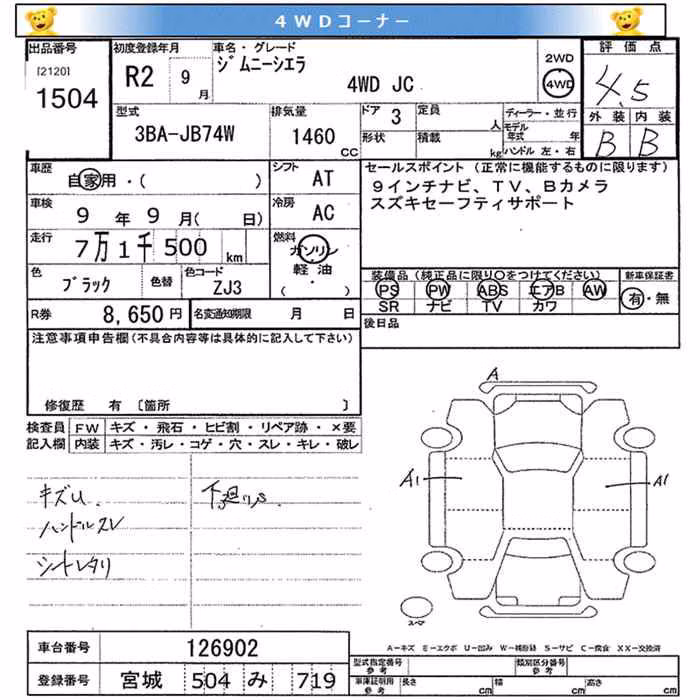 4WDコーナー
出品番号
[2120]
1504
初度登録年月
R2 9月
車名・グレード
ジムニーシエラ
4WD JC
2WD
4WD
評価点
4.5
外装 内装
B B
型式
3BA-JB74W
排気量
1460 CC
ドア 3
形状
定員 人
積載 kg
ディーラー・並行
モデル年式 年
ハンドル 左・右
車歴
自家用・( )
車検
9年 9月( 日)
走行
7万1千500km
色
ブラック
色替
色コード
ZJ3
シフト
AT
冷房
AC
燃料
ガソリン
軽油
( ・ )
セールスポイント (正常に機能するものに限ります)
9インチナビ、TV、Bカメラ
スズキセーフティサポート
装備品(純正品に限り○をつけてください)
PS PW ABS エアB AW
SR ナビ TV カワ
新車保証書
有・無
R券 8,650円
名変通知期限 月 日
後日品
注意事項申告欄(不具合内容等は具体的に記入して下さい)
修復歴 有 〔箇所 〕
検査員記入欄
FW キズ・飛石・ヒビ割・リペア跡・×要
内装 キズ・汚レ・コゲ・穴・スレ・キレ・破レ
キズU
ハンドルスレ
シートヘタリ
下廻りS
A
A1
A1
スペア
A=キズ E=エクボ U=凹み W=補修跡 S=サビ C=腐食 XX=交換済
車台番号 126902
登録番号 宮城 504 み 719
型式指定番号 参考
類別区分番号 参考
車庫証明用 参考 長さ cm 幅 cm 高さ cm